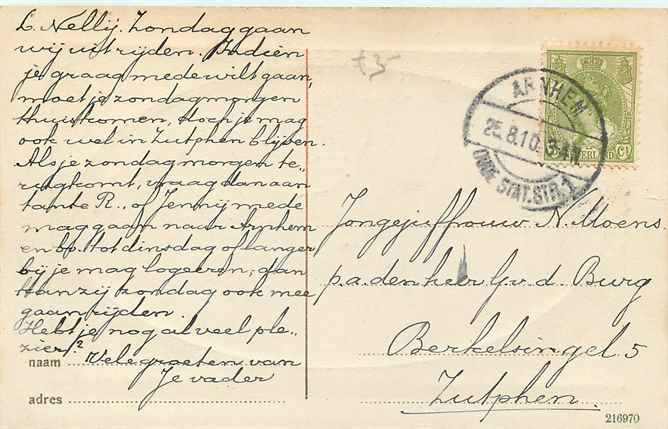 L. Nellij. Zondag gaan
wij uit rijden. Indien
je graag mede wilt gaan,
moet je zondagmorgen
thuiskomen, doch je mag
ook wel in Zutphen blijven.
Als je zondag morgen te-
rugkomt, vraag dan aan
tante R., of Jennij mede
mag gaan naar Arnhem
en bv. tot dinsdag of langer
bij je mag logeeren, dan
kan zij zondag ook mee
gaan rijden.
Hebt je nog al veel ple-
zier?
naam Vele groeten van
Je vader
adres
£3-
ARNHEM
25.8.10. 3-4 N
OUDE STAT.STR. 1
NEDERLAND
Jongejuffrouw N. Moens.
p.a. den heer G. v. d. Burg
Berkelsingel 5
Zutphen.
216970